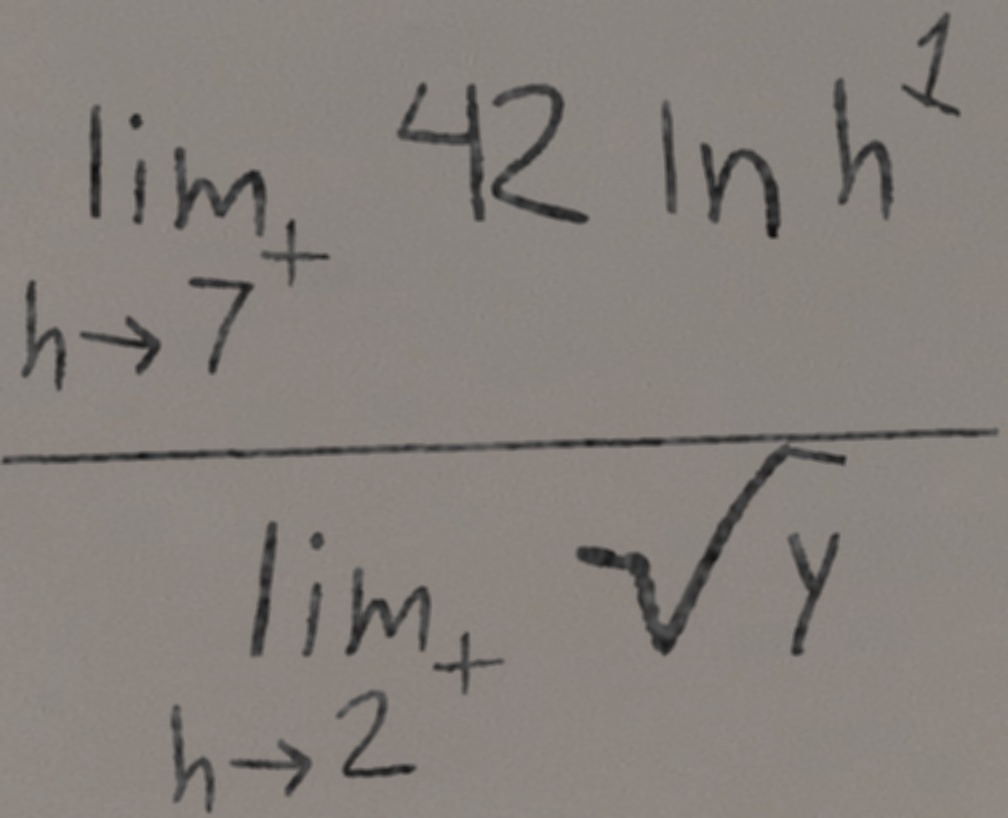 \frac{\lim_{h \to 7^+} 42 \ln h^1}{\lim_{h \to 2^+} \sqrt{y}}